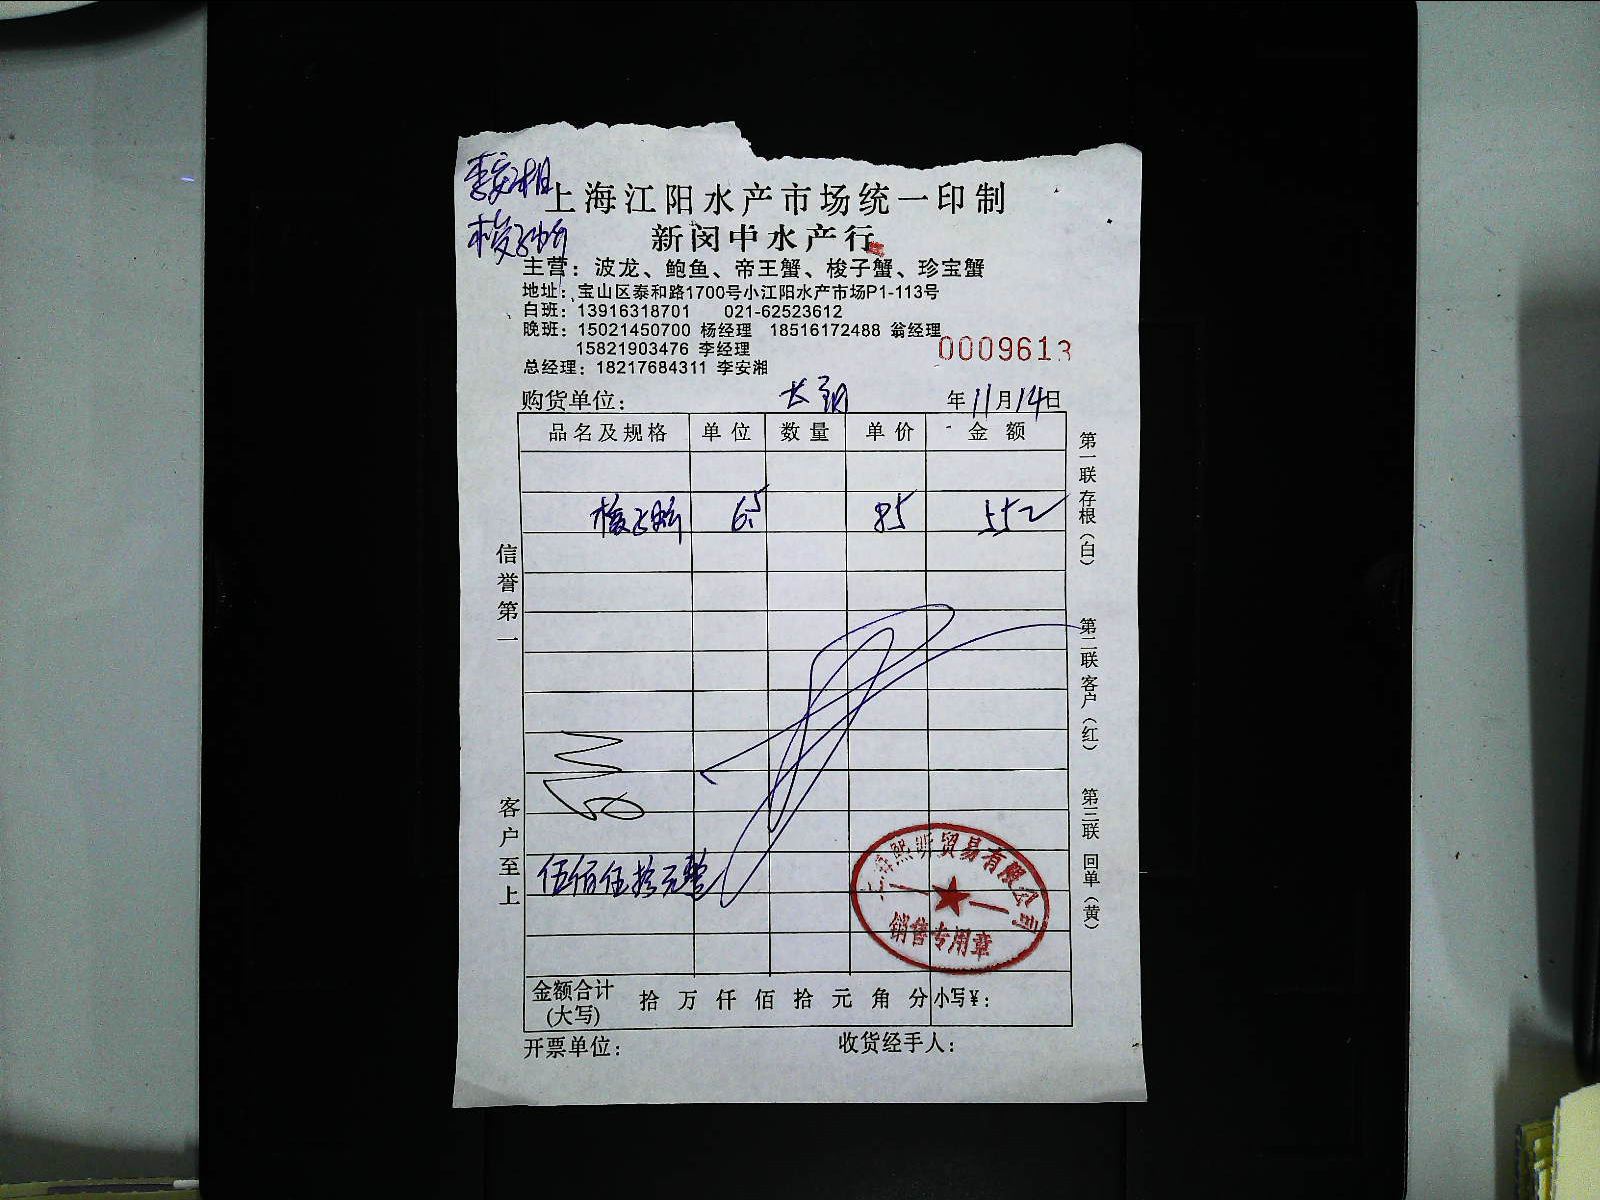 李安湘
梭子蟹
上海江阳水产市场统一印制
新闵中水产行
主营：波龙、鲍鱼、帝王蟹、梭子蟹、珍宝蟹
地址：宝山区泰和路1700号小江阳水产市场P1-113号
白班：13916318701 021-62523612
晚班：15021450700 杨经理 18516172488 翁经理
15821903476 李经理
0009613
总经理：18217684311 李安湘
购货单位： 年11月14日
品名及规格 单位 数量 单价 金额
梭子蟹 6.5 85 552
第一联存根（白）
第二联客户（红）
第三联回单（黄）
信誉第一
客户至上
伍佰伍拾元整
贸易有限公司
销售专用章
金额合计(大写) 拾万仟佰拾元角分 小写¥：
开票单位： 收货经手人：